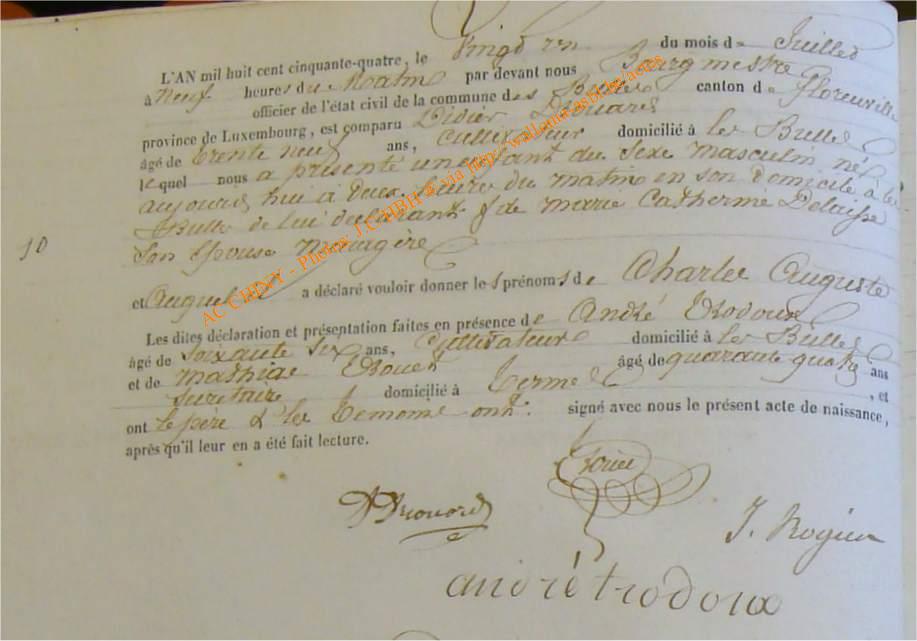 L'AN mil huit cent cinquante-quatre, le Vingt un du mois de Juillet
à neuf heures du Matin par devant nous Bourgmestre
officier de l'état civil de la commune des Bulles canton de Florenville
province de Luxembourg, est comparu Didier Drouard
âgé de trente neuf ans, Cultivateur domicilié à les Bulles
lequel nous a présenté un enfant du Sexe masculin né
aujourd'hui à deux heures du matin en son domicile à les
Bulles de lui déclarant & de marie Catherine Delaisse
10
Son Epouse Menagère
et auquel il a déclaré vouloir donner les prénoms de Charles Auguste
Les dites déclaration et présentation faites en présence de André Trodoux
âgé de soixante six ans, Cultivateur domicilié à les Bulles
et de Mathias âgé de quarante quatre ans
Secretaire domicilié à Termes, et
ont le père & les temoins ont signé avec nous le présent acte de naissance,
après qu'il leur en a été fait lecture.
D Drouard
J. Rogier
andré trodoux
AC CHINY - Photos: J.C.HBH & via http:/wallonia-asbl.be/actes